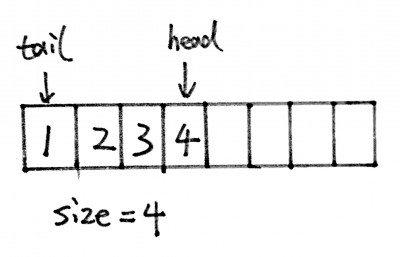 tail head
1 2 3 4
size = 4